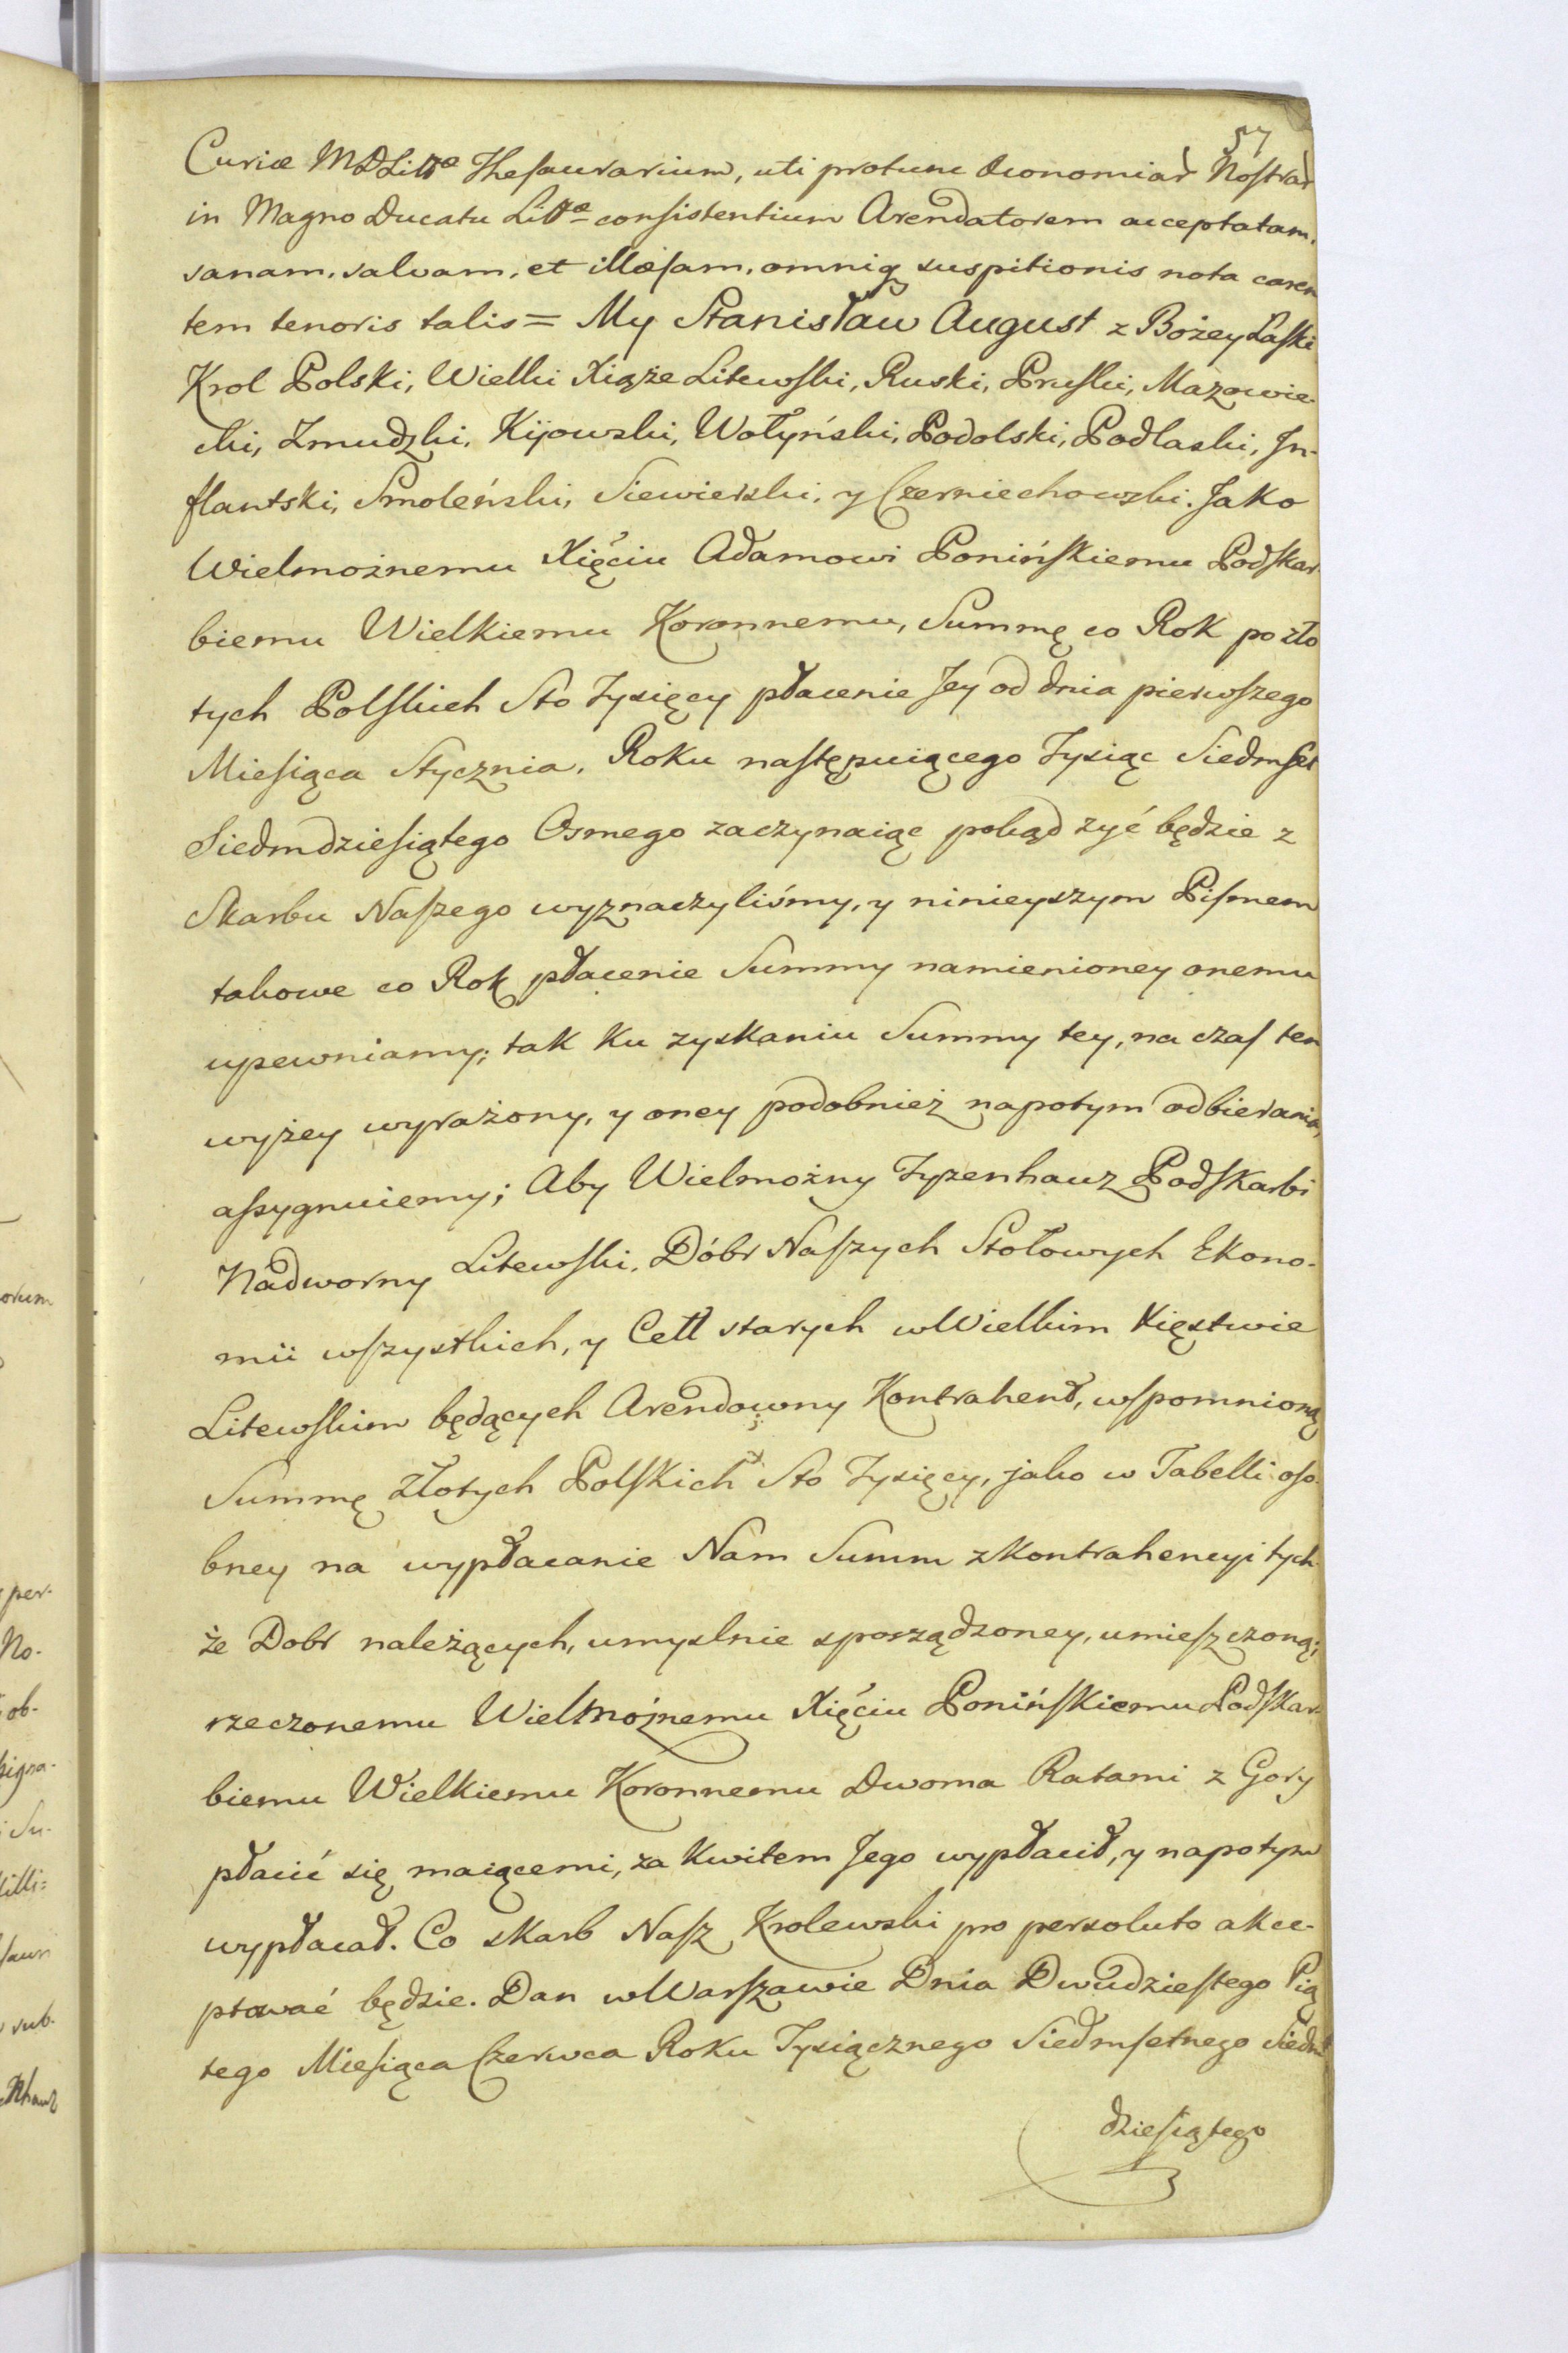 57
Curiæ MDLittæ Thesaurarium, uti protunc Œconomiar Nostrar
in Magno Ducatu Littæ consistentium Arendatorem acceptatam,
sanam, salvam, et illæsam, omniq suspitionis nota caren
tem tenoris talis = My Stanisław August z Bożey Łaski
Krol Polski, Wielki Xiąże Litewski, Ruski, Pruski, Mazowie-
cki, Zmudzki, Kijowski, Wołyński, Podolski, Podlaski, In-
flantski, Smoleński, Siewierski, y Czerniechowski. Jako
Wielmożnemu Xięciu Adamowi Ponińskiemu Podskar-
biemu Wielkiemu Koronnemu, Summę co Rok po zło
tych Polskich Sto Tysięcy płacenie Jey od dnia pierwszego
Miesiąca Stycznia, Roku następuiącego Tysiąc Siedmset
Siedmdziesiątego Osmego zaczynaiąc pokąd zyć będzie z
Skarbu Naszego wyznaczyliśmy, y ninieyszym Pismem
takowe co Rok płacenie Summy namienioney onemu
upewniamy; tak ku zyskaniu Summy tey, na czas ten
wyżey wyrażony, y oney podobnież napotym odbierania,
assygnuiemy; Aby Wielmożny Tyzenhauz Podskarbi
Nadworny Litewski, Dóbr Naszych Stołowych Ekono-
mii wszystkich, y Cell starych w Wielkim Xięstwie
Litewskim będących Arendowny Kontrahent, wspomnioną
Summę Złotych Polskich Sto Tysięcy, jako w Tabelli oso-
bney na wypłacanie Nam Summ z Kontrahencyi tych-
że Dobr należących, umyslnie sporządzoney, umieszczoną;
rzeczonemu Wielmożnemu Xięciu Ponińskiemu Podskar-
biemu Wielkiemu Koronnemu Dwoma Ratami z Gory
płacić się maiącemi, za Kwitem Jego wypłacił, y napotym
wypłacał. Co skarb Nasz Krolewski pro persoluto akce-
ptować będzie. Dan w Warszawie Dnia Dwudziestego Pią
tego Miesiąca Czerwca Roku Tysiącznego Siedmsetnego Siedm
dziesiątego